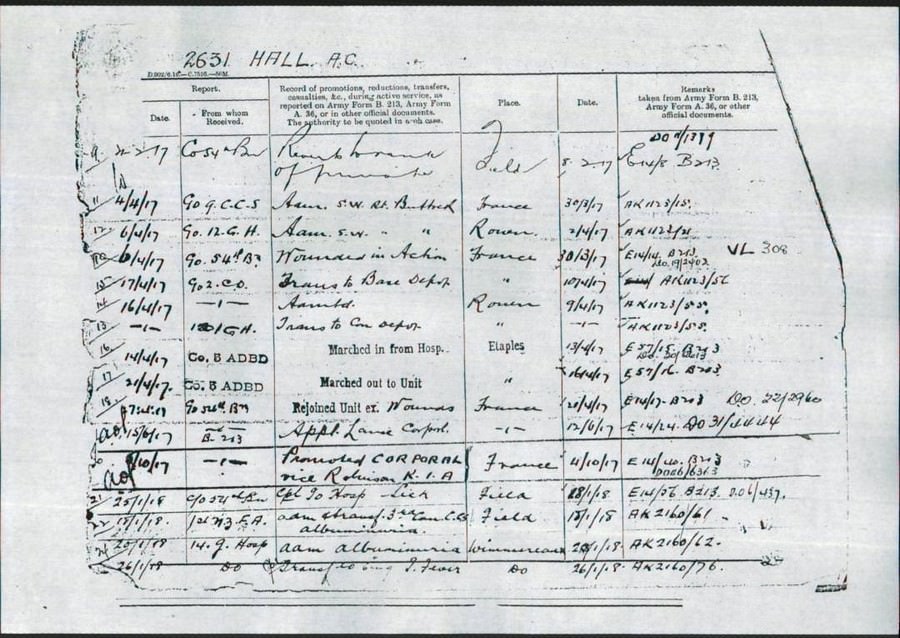 2631 HALL. A.C.
Report.
Date.
From whom Received.
Record of promotions, reductions, transfers, casualties, &c., during active service, as reported on Army Form B. 213, Army Form A. 36, or in other official documents. The authority to be quoted in each case.
Place.
Date.
Remarks taken from Army Form B. 213, Army Form A. 36, or other official documents.
2/17 Co 54th Bn of private Field 8 2 17 E14/8 B213
11 4/4/17 Co 9. C.C.S Adm. S.W. Rt. Buttock France 30/3/17 AK1123/15.
12 6/4/17 Co. 12. G. H. Adm. S.W. " " Rouen. 2/4/17 AK1123/21
6/4/17 Co. 54th Bn Wounded in Action France 30/3/17 E14/14. B213 VL 308
Do. 19/2402
15 17/4/17 Co 2. C.D. Trans to Base Depot " AK1123/56
14 16/4/17 —"— Admtd. Rouen 9/4/17 AK1123/55.
13 —"— G H. Trans to Con Depot " —"— AK1123/55.
16 14/4/17 Co. B ADBD Marched in from Hosp. Etaples 13/4/17 E57/15. B213
17 21/4/17. Co. B ADBD Marched out to Unit " 16/4/17 E57/16. B213
18 Co 54th Bn Rejoined Unit ex. Wounds France E14/17- B213 DO. 22/2960
15/6/17 B. 213 Appt. Lance Corporl. —"— 12/6/17 E14/24. DO31/4444
9/10/17 —"— Promoted CORPORAL vice Robinson K.I.A France 4/10/17 E14/40. B213
21 25/1/18 Co 54th Bn To Hosp Sick Field 18/1/18 E14/56 B213.
22 18/1/18. 1st N3 F.A. adm & transf. 3rd Can C.C.S albuminuria. Field 18/1/18 AK2160/61
25/1/18 14. G. Hosp adm albuminuria Wimmereaux AK2160/62.
26/1/18 DO Transf to Eng Do 26/1/18. AK2160/76.